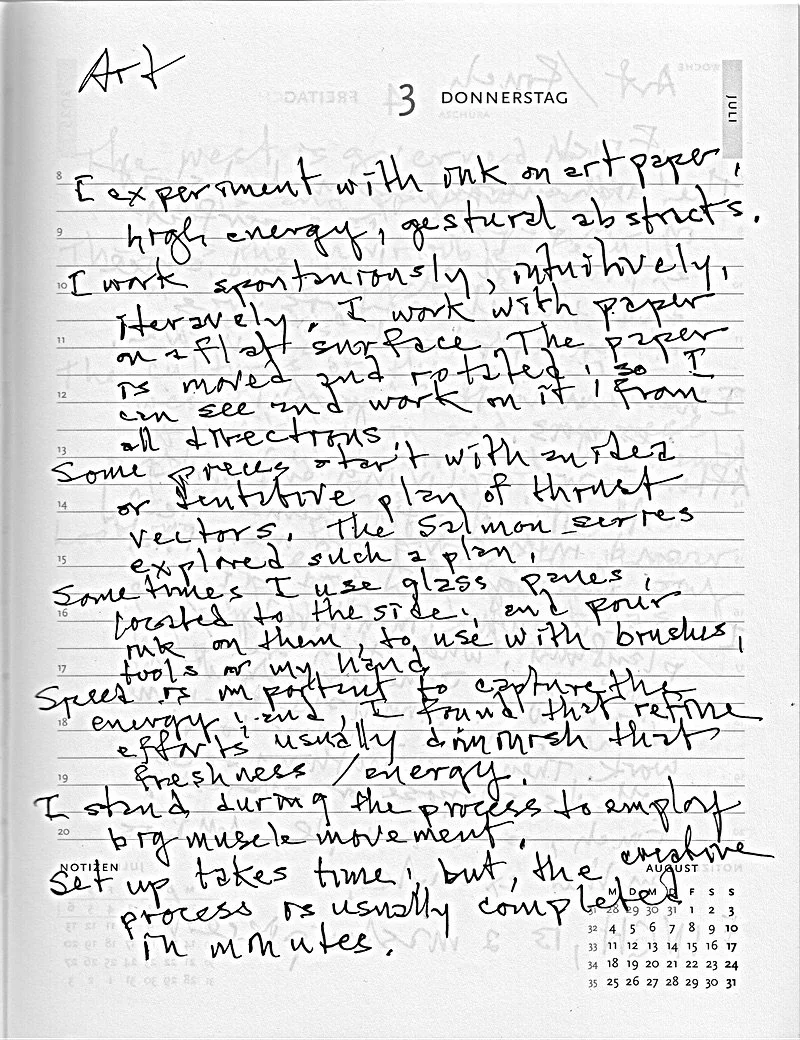 Art
3 DONNERSTAG
JULI
I experiment with ink on art paper,
high energy, gestural abstracts.
I work spontaniously, intuitively,
iteravely. I work with paper
on a flat surface. The paper
is moved and rotated; so I
can see and work on it, from
all directions.
Some pieces start with
or tentative plan of thrust
vectors. The Salmon series
explored such a plan.
Sometimes I use glass panes,
located to the side, and pour
ink on them, to use with brushes,
tools or my hand
Speed is important to capture the
energy; and, I found that refine
efforts usually diminish that
freshness / energy.
I stand during the process to employ
big muscle movement.
Set up takes time; but, the creative
process is usually completed
in minutes.
8
9
10
11
12
13
14
15
16
17
18
19
20
NOTIZEN
AUGUST
M D M D F S S
31 28 29 30 31 1 2 3
32 4 5 6 7 8 9 10
33 11 12 13 14 15 16 17
34 18 19 20 21 22 23 24
35 25 26 27 28 29 30 31